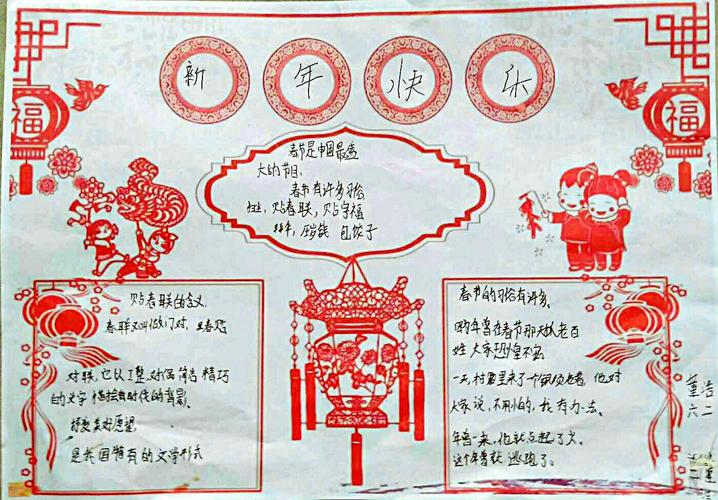 新年快乐
福
福
春节是中国最透
大的节日、
春节有许多习俗
贴春联,贴字福
拜年,压岁钱 包饺子
贴春联的含义
春联又叫做门对,
对联,它以工整,对偶 简洁 精巧
的文字 描绘 时代的背景,
抒发美好愿望
是我国特有的文学形式
春节的习俗有许多,
年兽在春节那天
姓 大家
一天,村里来了个 他对
大家说,不用怕的,我有办法、
年兽一来,他就点起了火
这个年兽就 逃跑了。
董浩
六二